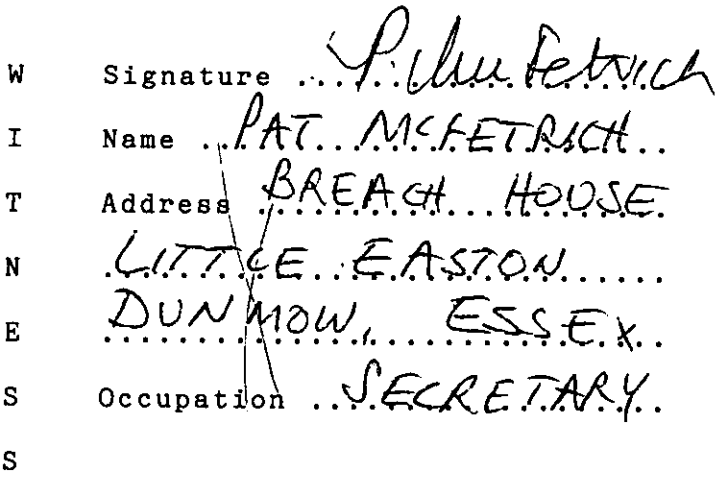 W Signature P. McFetrich
I Name PAT MCFETRICH
T Address BREACH HOUSE
N LITTLE EASTON
E DUNMOW, ESSEX
S Occupation SECRETARY
S